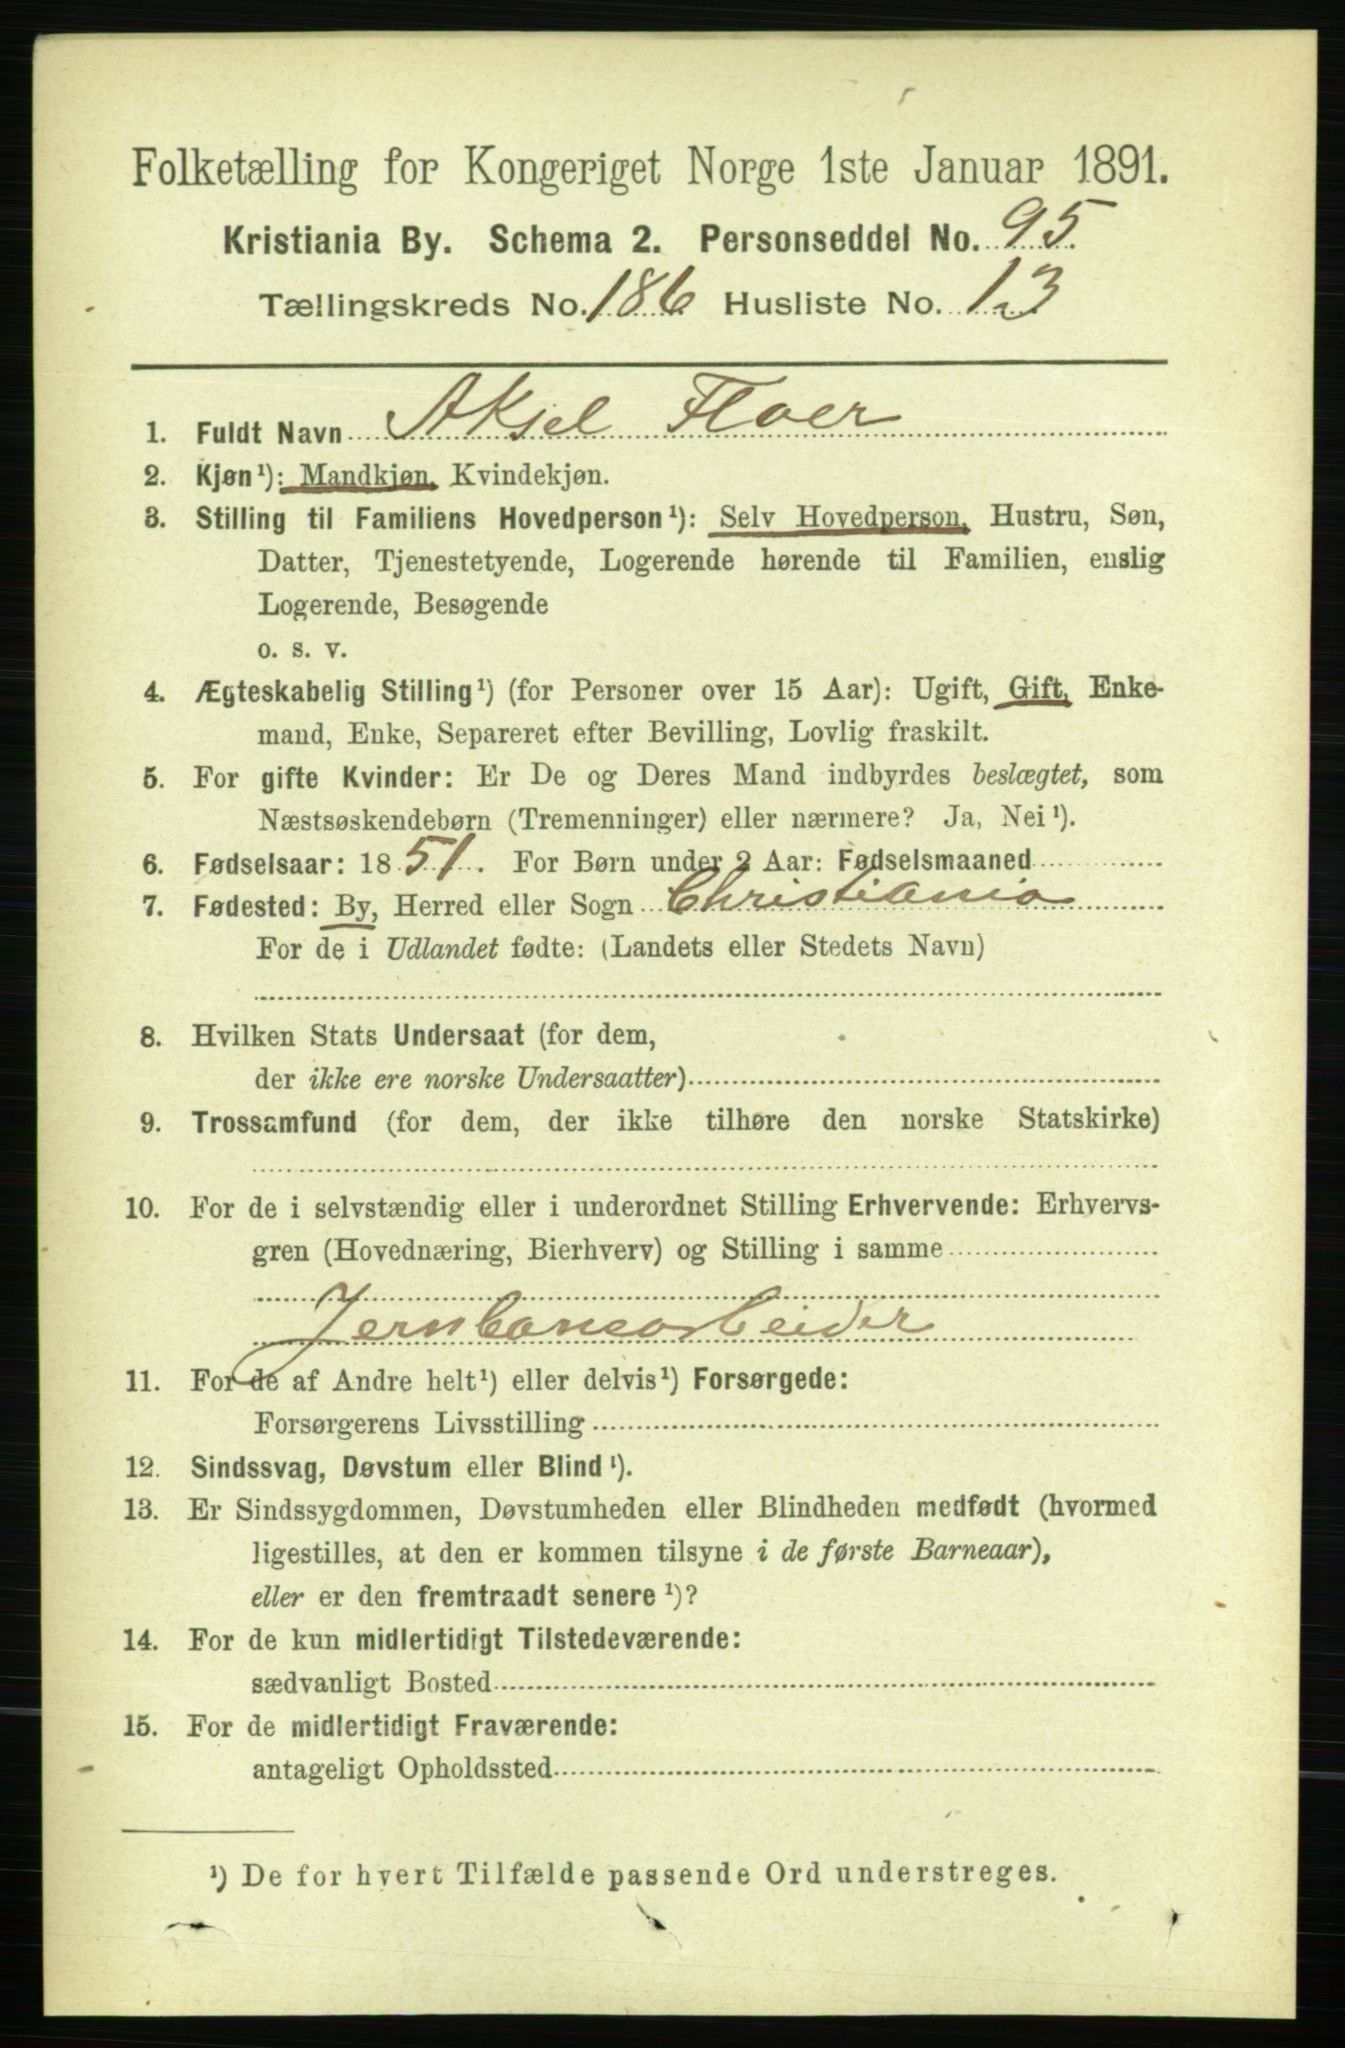 Folketælling for Kongeriget Norge 1ste Januar 1891.
Kristiania By. Schema 2. Personseddel No. 95
Tællingskreds No. 186 Husliste No. 13
1. Fuldt Navn Aksel Floer
2. Kjøn¹): Mandkjøn, Kvindekjøn.
3. Stilling til Familiens Hovedperson¹): Selv Hovedperson, Hustru, Søn,
Datter, Tjenestetyende, Logerende hørende til Familien, enslig
Logerende, Besøgende
o. s. v.
4. Ægteskabelig Stilling¹) (for Personer over 15 Aar): Ugift, Gift, Enke-
mand, Enke, Separeret efter Bevilling, Lovlig fraskilt.
5. For gifte Kvinder: Er De og Deres Mand indbyrdes beslægtet, som
Næstsøskendebørn (Tremenninger) eller nærmere? Ja, Nei¹).
6. Fødselsaar: 1851. For Børn under 2 Aar: Fødselsmaaned
7. Fødested: By, Herred eller Sogn Christiania
For de i Udlandet fødte: (Landets eller Stedets Navn)
8. Hvilken Stats Undersaat (for dem,
der ikke ere norske Undersaatter)
9. Trossamfund (for dem, der ikke tilhøre den norske Statskirke)
10. For de i selvstændig eller i underordnet Stilling Erhvervende: Erhvervs-
gren (Hovednæring, Bierhverv) og Stilling i samme
Jernbanearbeider
11. For de af Andre helt¹) eller delvis¹) Forsørgede:
Forsørgerens Livsstilling
12. Sindssvag, Døvstum eller Blind¹).
13. Er Sindssygdommen, Døvstumheden eller Blindheden medfødt (hvormed
ligestilles, at den er kommen tilsyne i de første Barneaar),
eller er den fremtraadt senere¹)?
14. For de kun midlertidigt Tilstedeværende:
sædvanligt Bosted
15. For de midlertidigt Fraværende:
antageligt Opholdssted
¹) De for hvert Tilfælde passende Ord understreges.